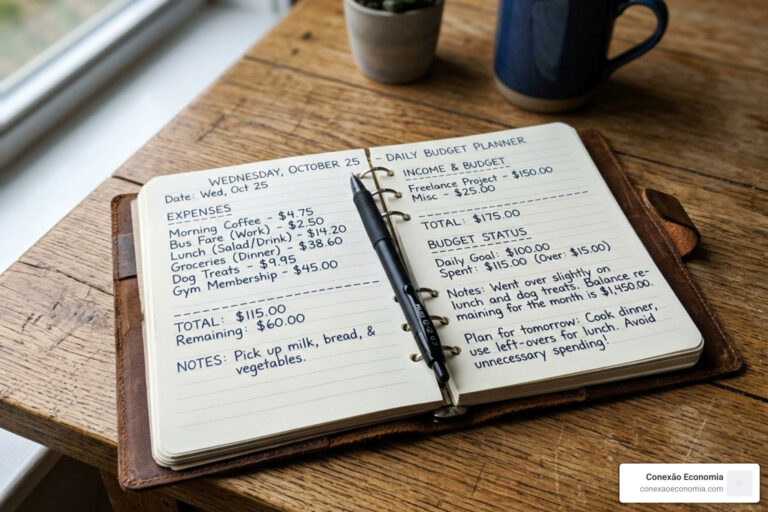 WEDNESDAY, OCTOBER 25
Date: Wed, Oct 25
EXPENSES
Morning Coffee - $4.75
Bus Fare (Work) - $2.50
Lunch (Salad/Drink) - $14.20
Groceries (Dinner) - $38.60
Dog Treats - $9.95
Gym Membership - $45.00
TOTAL: $115.00
Remaining: $60.00
NOTES: Pick up milk, bread, &
vegetables.
- DAILY BUDGET PLANNER
INCOME & BUDGET
Freelance Project - $150.00
Misc - $25.00
TOTAL: $175.00
BUDGET STATUS
Daily Goal: $100.00
Spent: $115.00 (Over: $15.00)
Notes: Went over slightly on
lunch and dog treats. Balance re-
maining for the month is $1,450.00.
Plan for tomorrow: Cook dinner,
use left-overs for lunch. Avoid
unnecessary spending!
Conexão Economia
conexaoeconomia.com